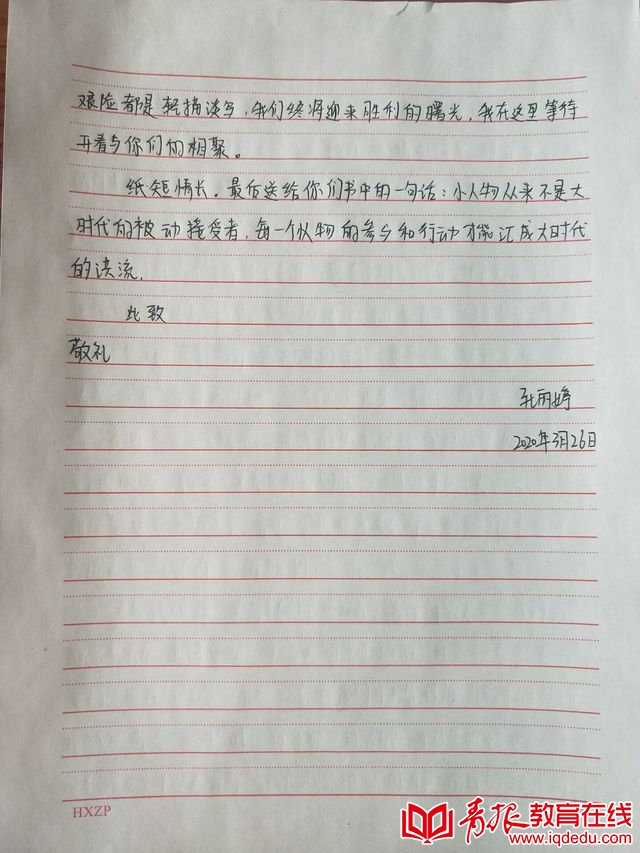 艰险都是轻描淡写,我们终将迎来胜利的曙光,我在这里等待
再看与你们的相聚。
纸短情长,最后送给你们书中的一句话:小人物从来不是大
时代的被动接受者,每一个人物的参与和行动才能汇成大时代
的洪流.
此致
敬礼
孔丽婷
2020年3月26日
HXZP
青报教育在线
www.iqdedu.com